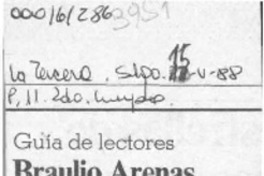 000161286 3951
La Tercera. Stgo. 15-V-88
P, 11. 2do. cuerpo.
Guía de lectores
Braulio Arenas